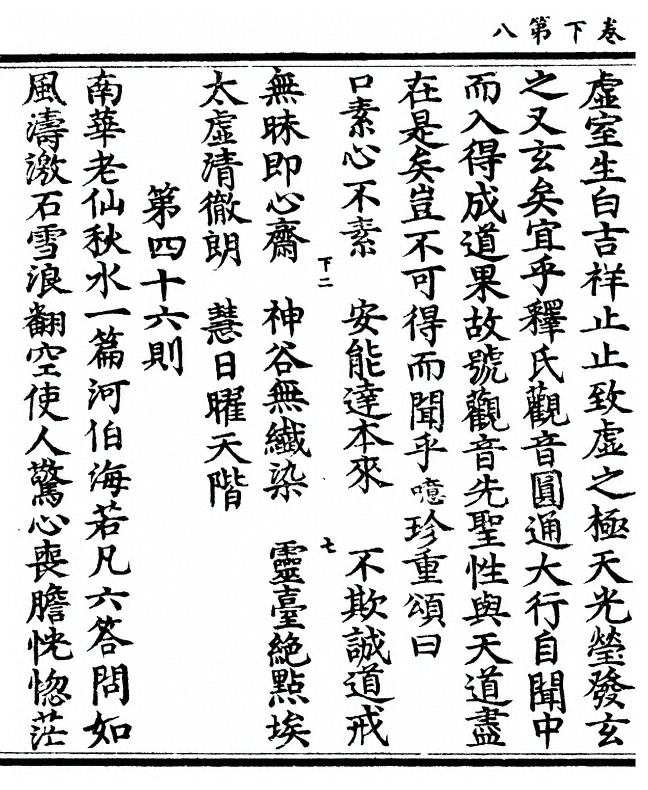 卷下第八
虛室生白吉祥止止致虛之極天光瑩發玄
之又玄矣宜乎釋氏觀音圓通大行自聞中
而入得成道果故號觀音先聖性與天道盡
在是矣豈不可得而聞乎噫珍重頌曰
口素心不素　安能達本來　不欺誠道戒
下二　七
無昧即心齋　神谷無纖染　靈臺絶點埃
太虛清徹朗　慧日曜天階
第四十六則
南華老仙秋水一篇河伯海若凡六答問如
風濤激石雪浪翻空使人驚心喪膽恍惚茫